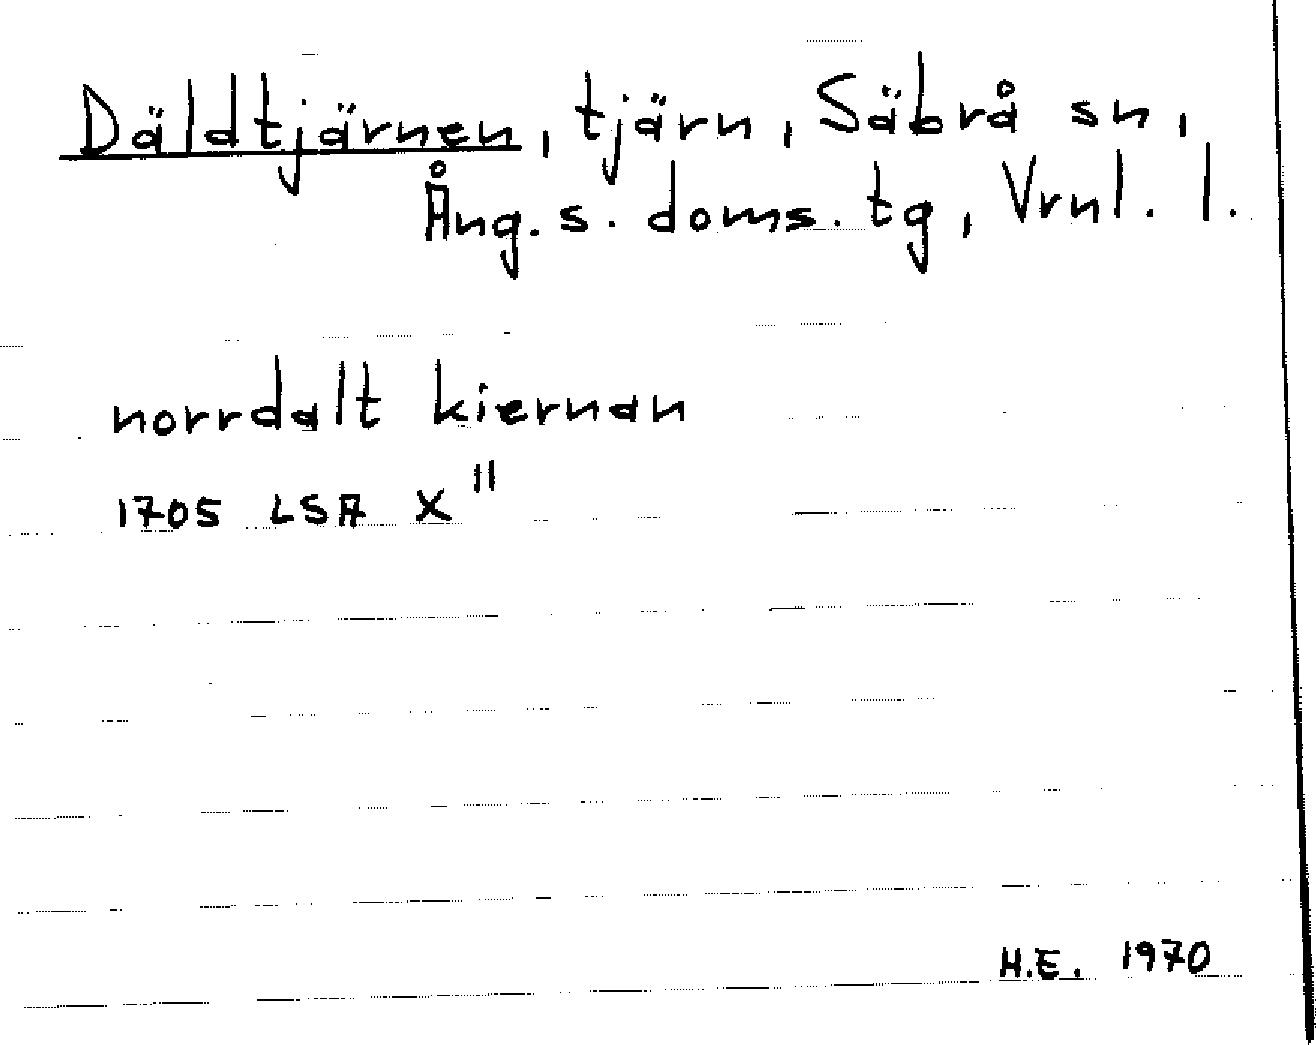 Däldtjärnen, tjärn, Säbrå sn,
Ång. s. doms. tg, Vrnl. l.
norrdalt kiernan
1705 LSA X"
H.E. 1970